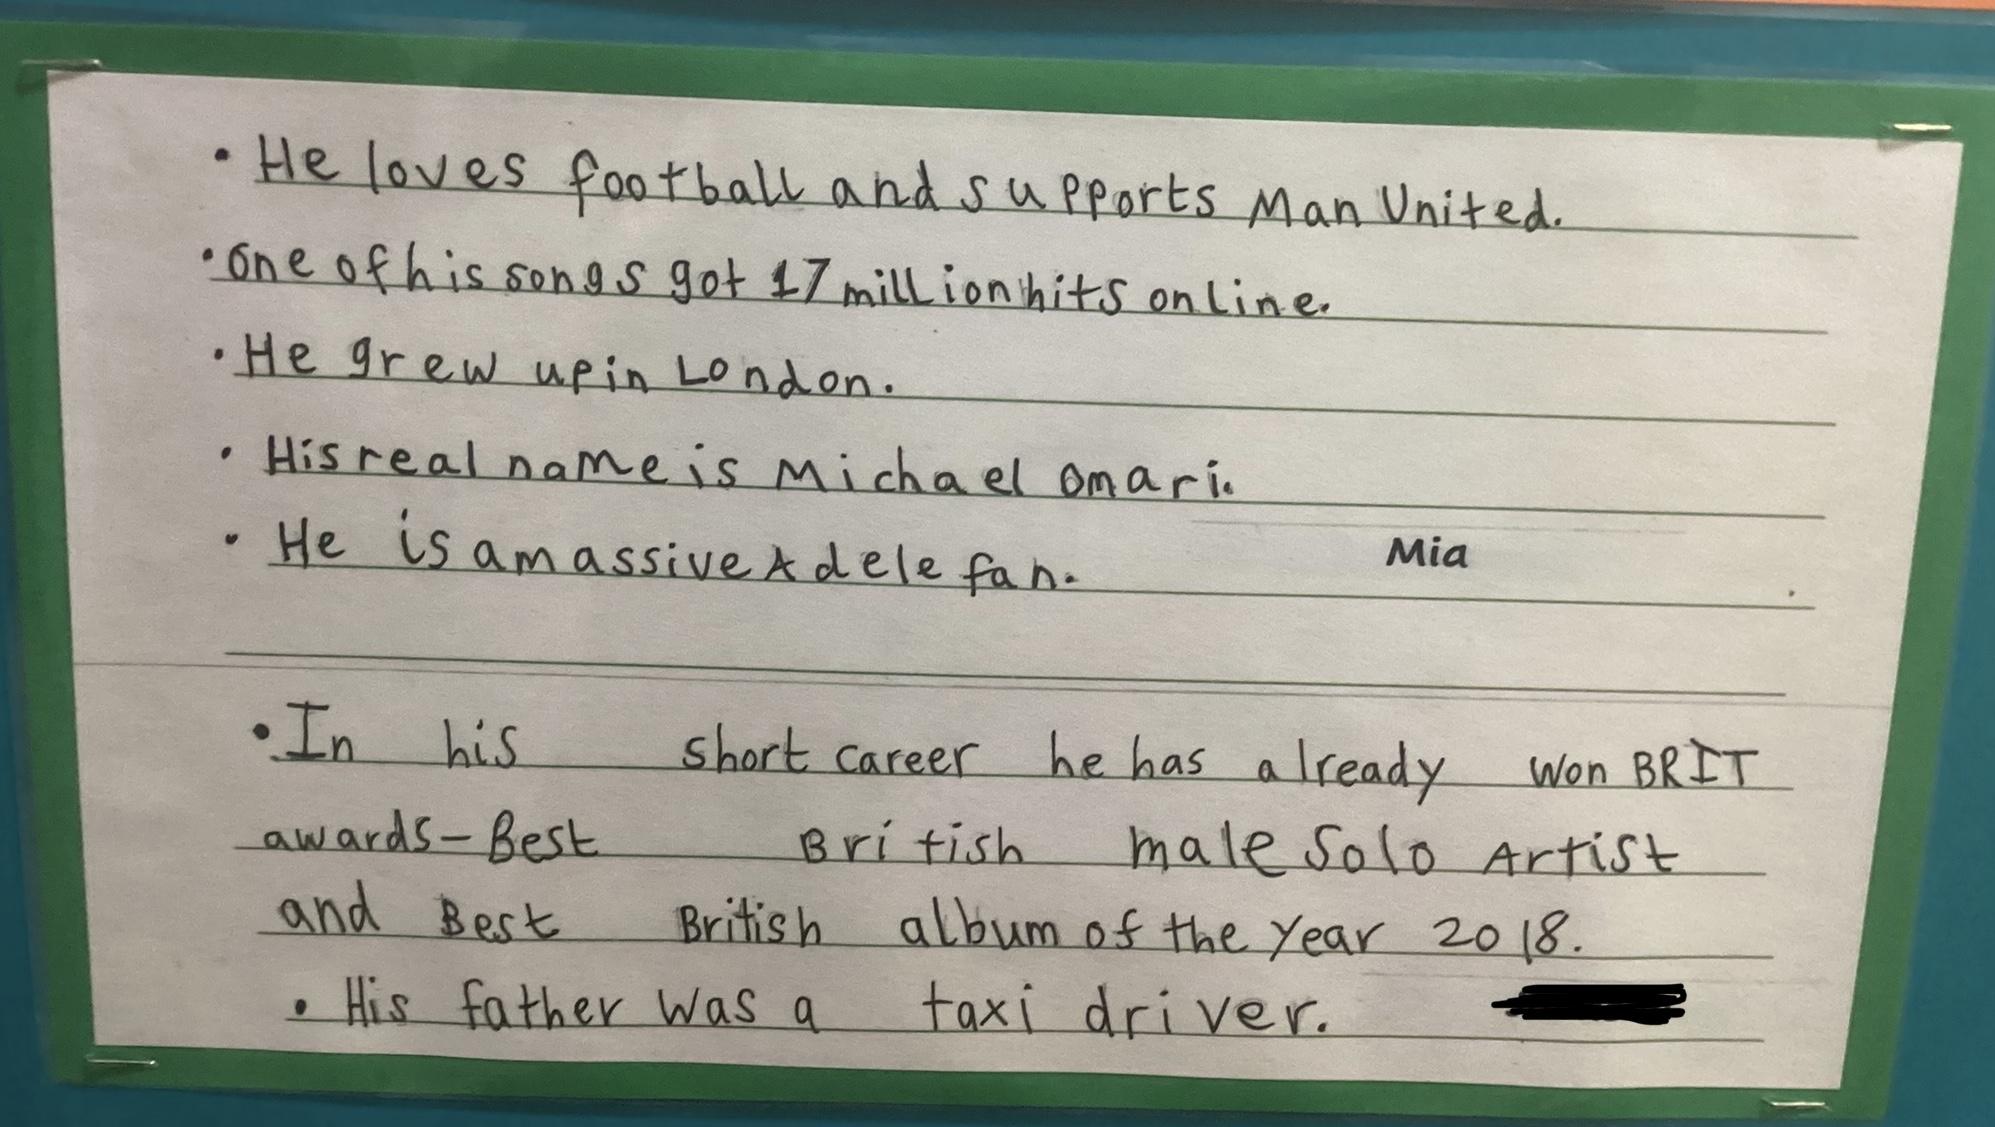 • He loves football and supports Man United.
• One of his songs got 17 million hits online.
• He grew up in London.
• His real name is Michael Omari.
• He is a massive Adele fan.
Mia
• In his short career he has already won BRIT
awards - Best British male Solo Artist
and Best British album of the Year 2018.
• His father was a taxi driver.